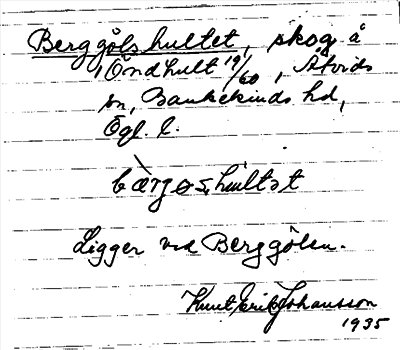 Berggölshultet, skog å
Öndhult 19/60, Åtvids
sn, Bankekinds hd,
Ögl. l.
Ligger vid Berggölen.
Knut Erik Johansson
1935